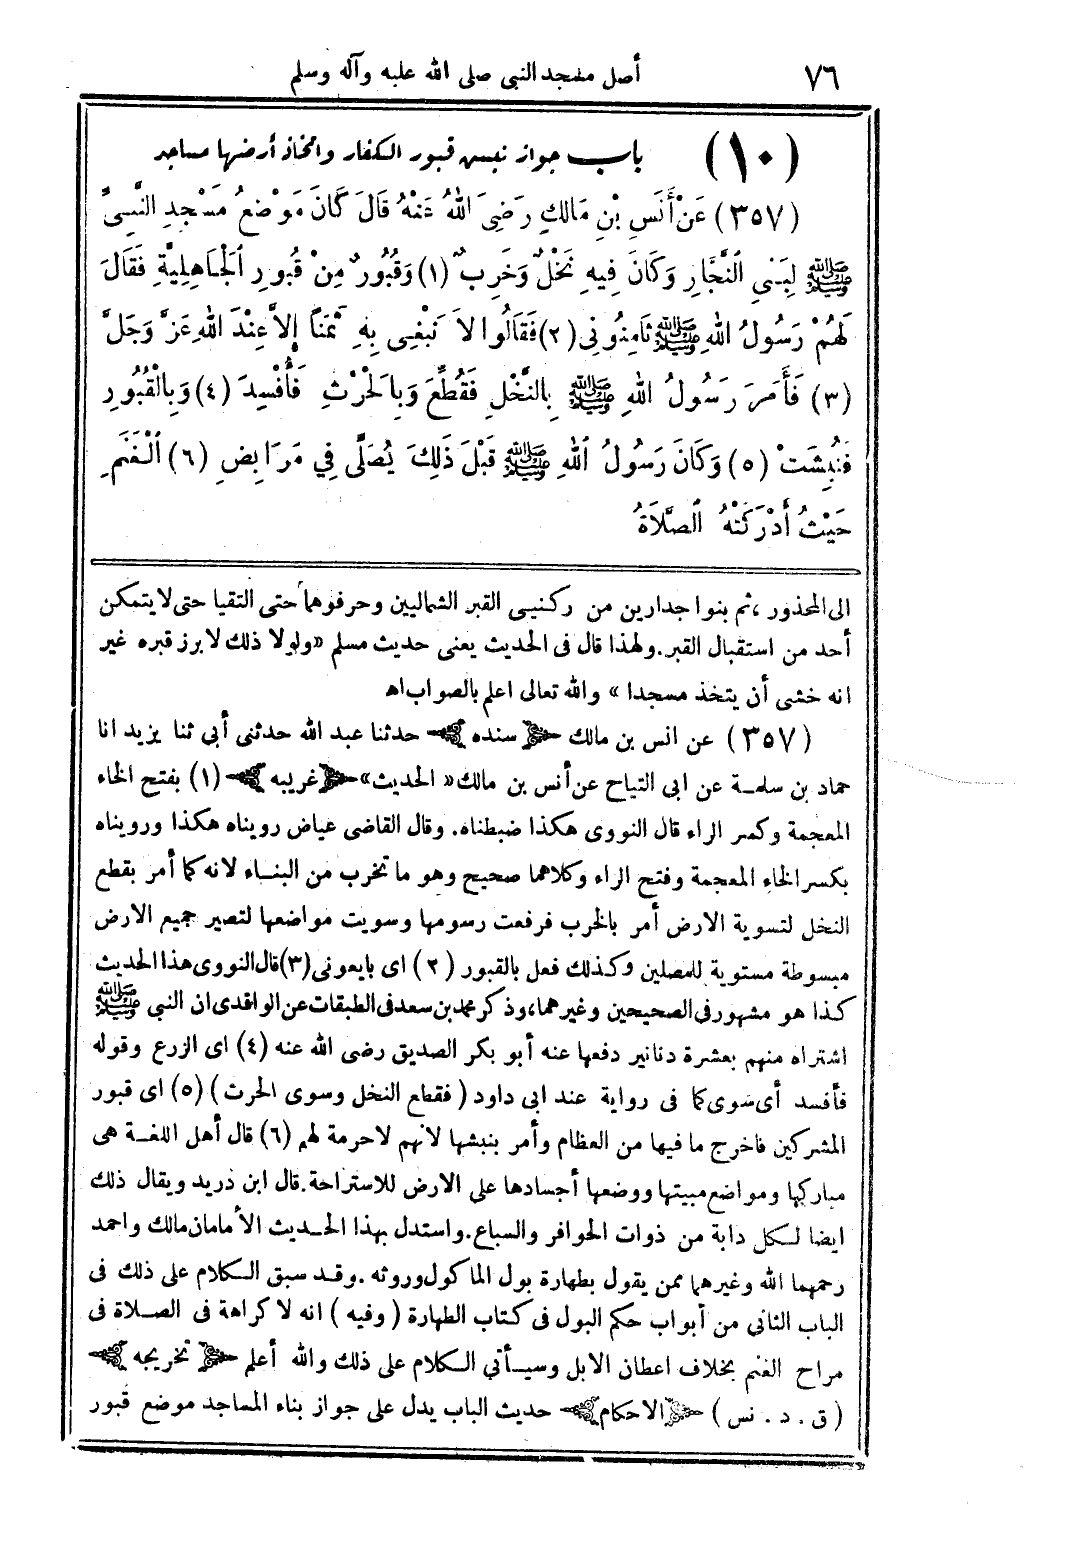 ٧٦ أصل مسجد النبى صلى الله عليه وآله وسلم
(١٠) باب جواز نبش قبور الكفار واتخاذ أرضها مساجد
(٣٥٧) عَنْ أَنَسِ بْنِ مَالِكٍ رَضِيَ اللهُ عَنْهُ قَالَ كَانَ مَوْضِعُ مَسْجِدِ النَّبِىِّ
ﷺ لِبَنِي النَّجَّارِ وَكَانَ فِيهِ نَخْلٌ وَخَرِبٌ (١) وَقُبُورٌ مِنْ قُبُورِ الْجَاهِلِيَّةِ فَقَالَ
لَهُمْ رَسُولُ اللهِ ﷺ ثَامِنُونِي (٢) فَقَالُوا لاَ نَبْغِى بِهِ ثَمَنًا إِلاَّ عِنْدَ اللهِ عَزَّ وَجَلَّ
(٣) فَأَمَرَ رَسُولُ اللهِ ﷺ بِالنَّخْلِ فَقُطِّعَ وَبِالْحَرْثِ فَأُفْسِدَ (٤) وَبِالْقُبُورِ
فَنُبِشَتْ (٥) وَكَانَ رَسُولُ اللهِ ﷺ قَبْلَ ذَلِكَ يُصَلِّى فِي مَرَابِضِ (٦) الْغَنَمِ
حَيْثُ أَدْرَكَتْهُ الصَّلاَةُ
الى المحذور ، ثم بنوا جدارين من ركنيى القبر الشماليين وحرفوهما حتى التقيا حتى لا يتمكن
أحد من استقبال القبر. ولهذا قال فى الحديث يعنى حديث مسلم «ولولا ذلك لا برز قبره غير
انه خشى أن يتخذ مسجدا » والله تعالى اعلم بالصواب اهـ
(٣٥٧) عن انس بن مالك ﴿ سنده ﴾ حدثنا عبد الله حدثنى أبى ثنا يزيد انا
حماد بن سلمة عن ابى التياح عن أنس بن مالك « الحديث » ﴿ غريبه ﴾ (١) بفتح الخاء
المعجمة وكسر الراء قال النووى هكذا ضبطناه. وقال القاضى عياض رويناه هكذا ورويناه
بكسر الخاء المعجمة وفتح الراء وكلاهما صحيح وهو ما تخرب من البناء لانه كما أمر بقطع
النخل لتسوية الارض أمر بالخرب فرفعت رسومها وسويت مواضعها لتصير جميع الارض
مبسوطة مستوية للمصلين وكذلك فعل بالقبور (٢) اى بايعونى (٣) قال النووى هذا الحديث
كذا هو مشهور فى الصحيحين وغيرهما، وذكر محمد بن سعد فى الطبقات عن الواقدى ان النبى ﷺ
اشتراه منهم بعشرة دنانير دفعها عنه أبو بكر الصديق رضى الله عنه (٤) اى الزرع وقوله
فأفسد أى سوى كما فى رواية عند ابى داود ( فقطع النخل وسوى الحرث ) (٥) اى قبور
المشركين فاخرج ما فيها من العظام وأمر بنبشها لانهم لاحرمة لهم (٦) قال أهل اللغة هى
مباركها ومواضع مبيتها ووضعها أجسادها على الارض للاستراحة. قال ابن دريد ويقال ذلك
ايضا لكل دابة من ذوات الحوافر والسباع. واستدل بهذا الحديث الأمامان مالك واحمد
رحمهما الله وغيرهما ممن يقول بطهارة بول المأكول وروثه. وقد سبق الكلام على ذلك فى
الباب الثانى من أبواب حكم البول فى كتاب الطهارة ( وفيه ) انه لا كراهة فى الصلاة فى
مراح الغنم بخلاف اعطان الابل وسيأتى الكلام على ذلك والله أعلم ﴿ تخريجه ﴾
( ق . د . نس ) ﴿ الاحكام ﴾ حديث الباب يدل على جواز بناء المساجد موضع قبور